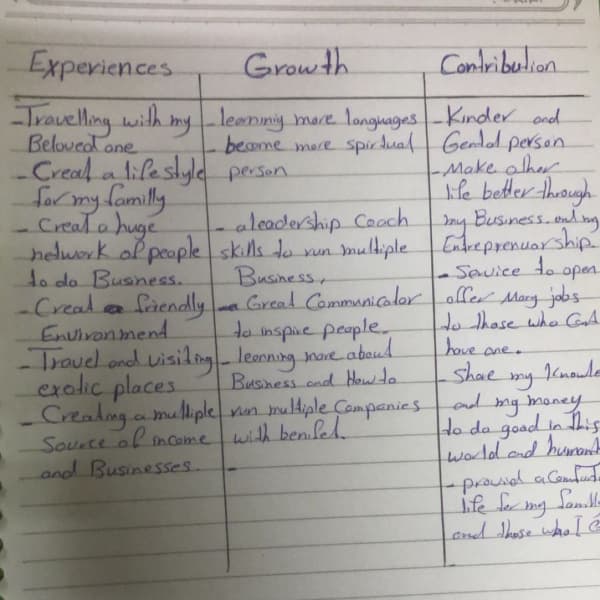 Experiences
-Travelling with my
Beloved one
- Creat a lifestyle
for my familly
- Creat a huge
network of people
to do Business.
- Creat friendly
Environment
- Travel and visiting
exotic places
- Creating a multiple
Source of income
and Businesses.
Growth
- learning more languages
- become more spirtual
person
- a leadership Coach
skills to run multiple
Business,
- Great Communicator
to inspire people.
- learning more about
Business and How to
run multiple Companies
with benifet.
-
Contribution
- Kinder and
Gental person
- Make other
life better through
my Business. and my
Entreprenuorship.
- Service to open
offer Many jobs
to those who Cant
have one.
- Share my Knowle
and my money
to do good in this
world and
- provid a
life for my
and those who I